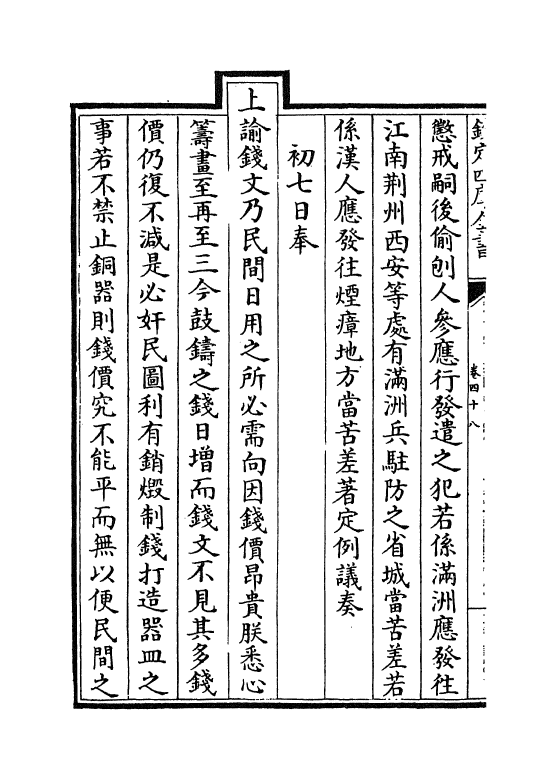 欽定四庫全書
卷四十八
懲戒嗣後偷刨人參應行發遣之犯若係滿洲應發往
江南荆州西安等處有滿洲兵駐防之省城當苦差若
係漢人應發往煙瘴地方當苦差著定例議奏
初七日奉
上諭錢文乃民間日用之所必需向因錢價昂貴朕悉心
籌畫至再至三今鼓鑄之錢日增而錢文不見其多錢
價仍復不減是必奸民圖利有銷燬制錢打造器皿之
事若不禁止銅器則錢價究不能平而無以便民間之